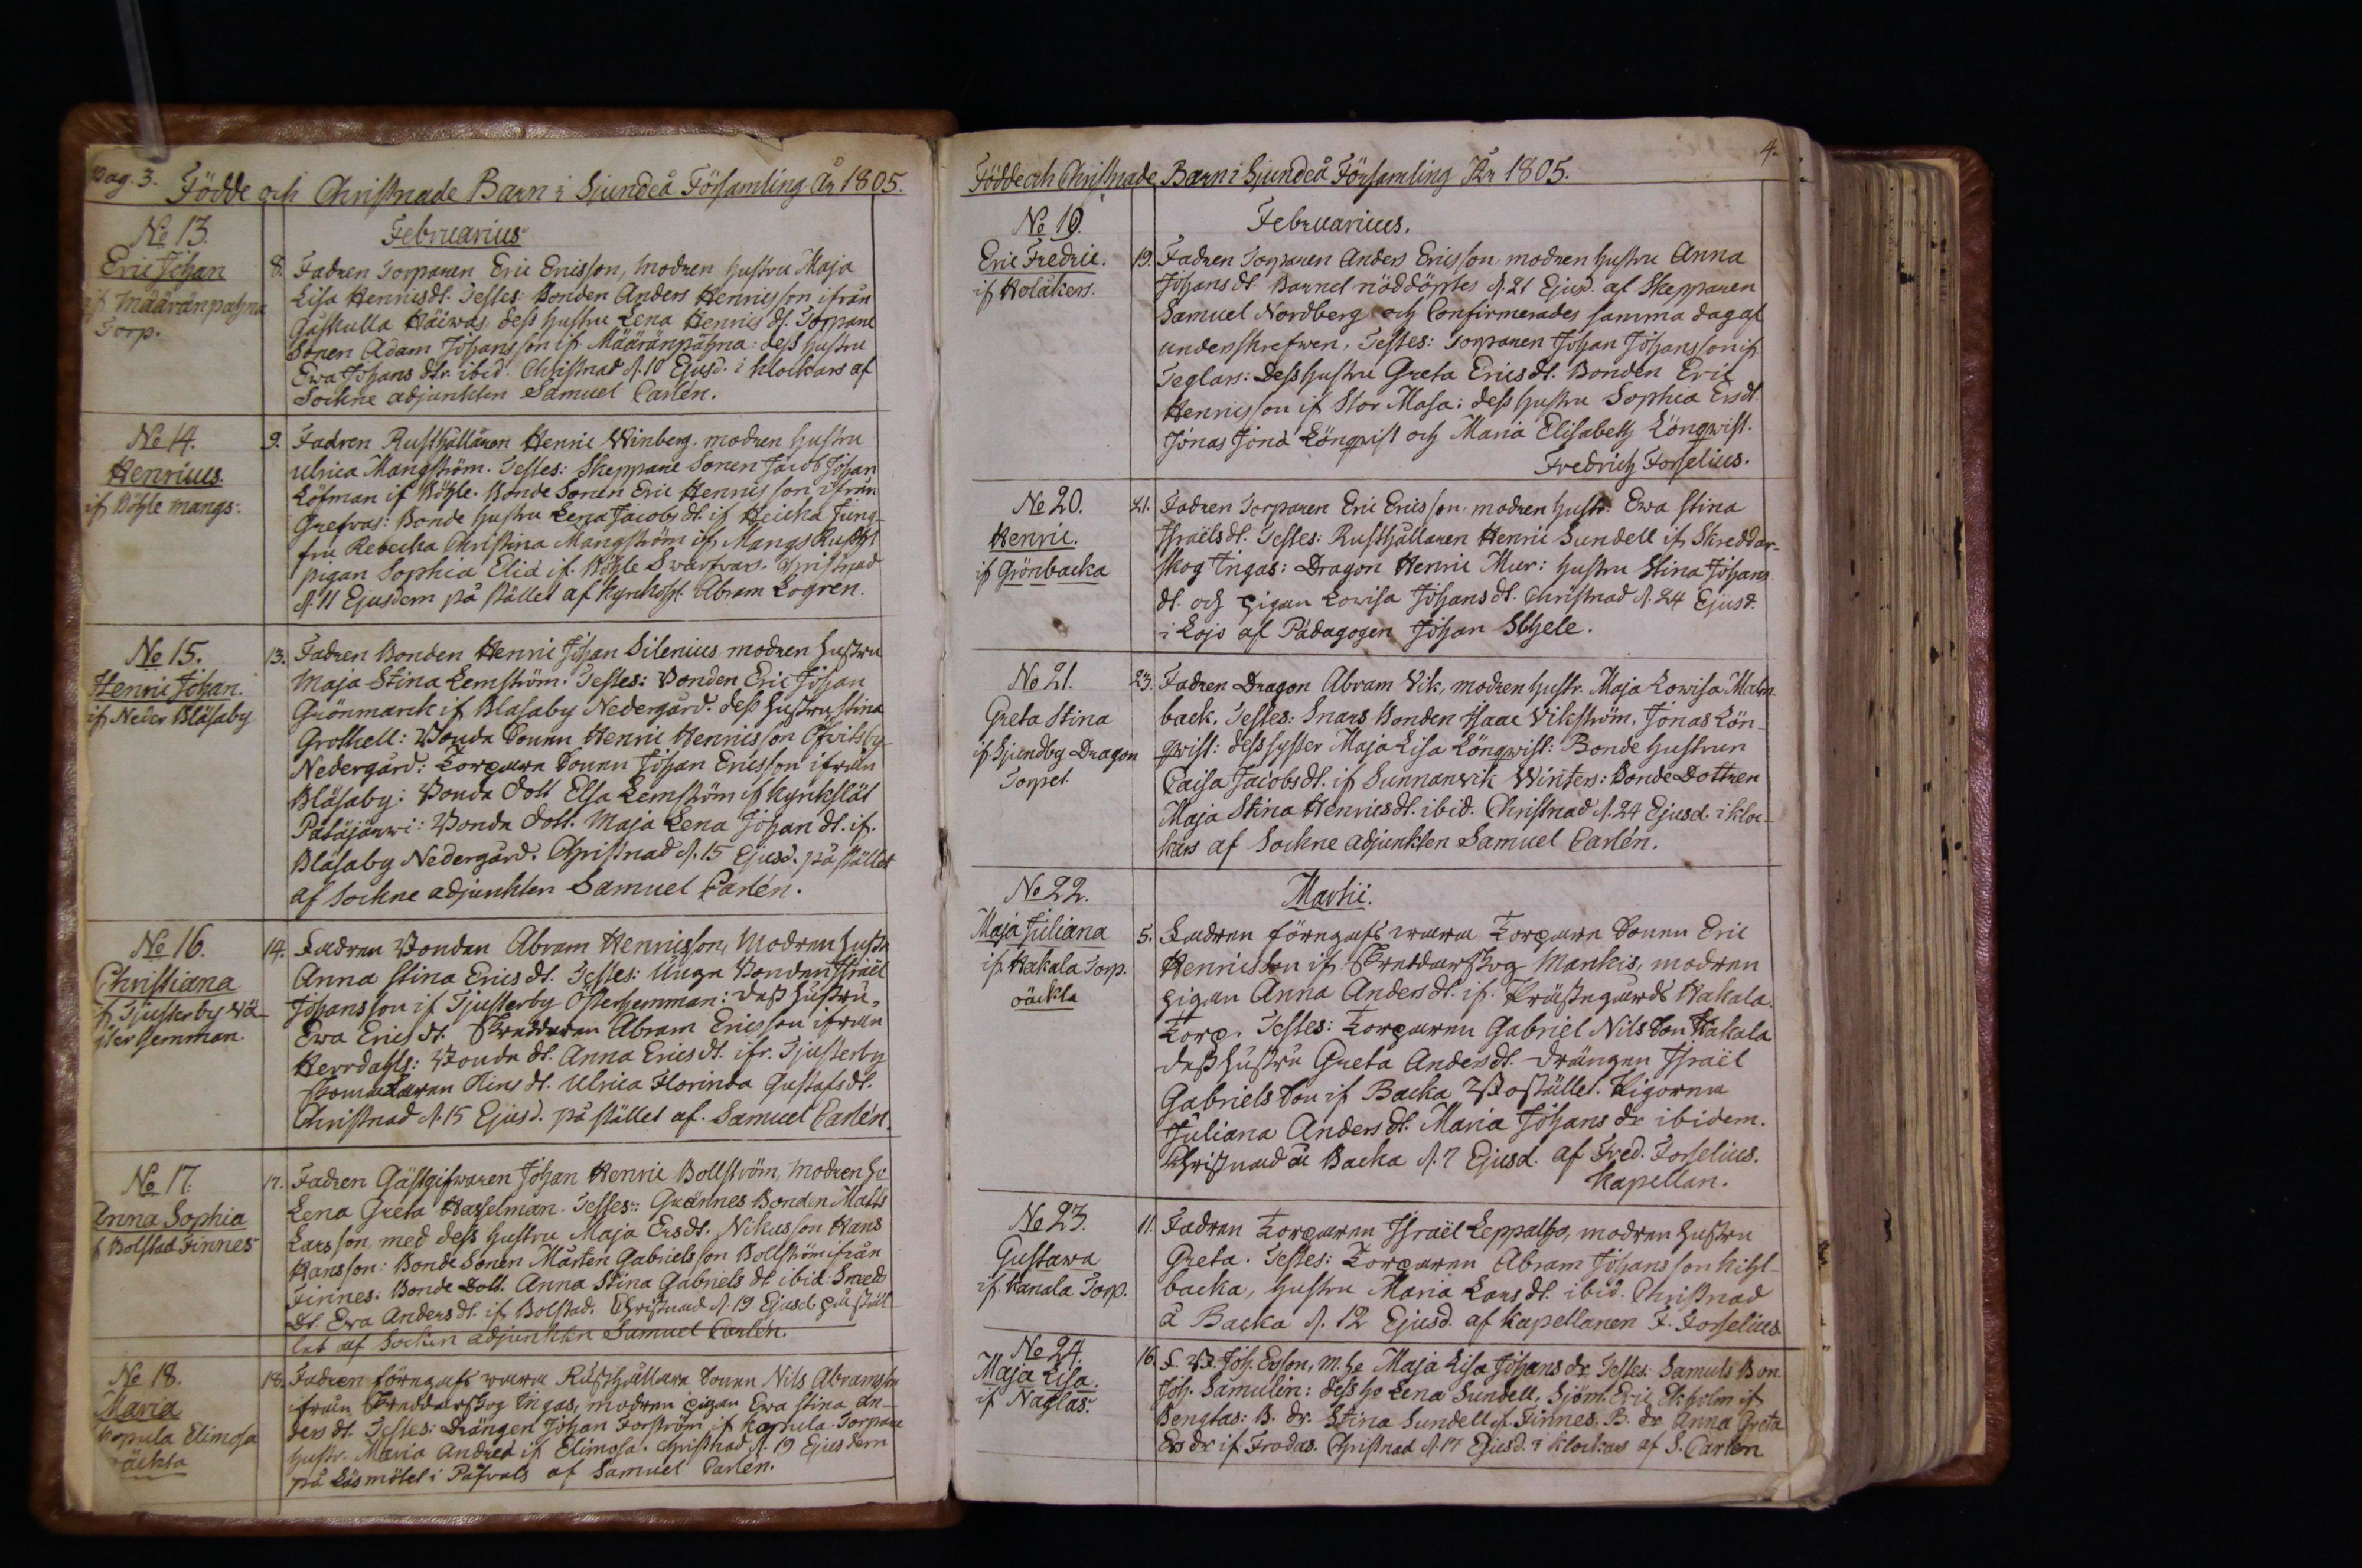 Pag. 3. Födde och Christnade Barn i Sjundeå Församling År 1805.
Februarius
No 13.
Eric Johan
if Määränpahna
Torp.
8. Fadren Torparen Eric Ericsson, modren hustru Maja
Lisa Henricsdt. Testes: Bonden Anders Henricsson ifrån
Gåskulla Häiwäs, dess hustru Lena Henrics dt. Torpare
Sonen Adam Johansson if Määränpähna: dess hustru
Ewa Johans dtr. ibid. Christnad d. 10 Ejusd. i Klockars af
Sockne adjunkten Samuel Carlén.
No 14.
Henricus.
if Böhle mangs.
9. Fadren Rusthållaren Henric Winberg. modren hustru
Ulrica Mangström. Testes: Skeppare Sonen Jacob Johan
Löfman if Böhle. Bonde Sonen Eric Henricsson ifrån
Grefvas: Bonde hustru Lena Jacobs dt. if Heicka Jung-
fru Rebecka Christina Mangström if Mangs Rusth.
pigan Sophia Elia if Böhle Swartvars. Christnad
d. 11 Ejusdem på stället af Kyrkoh. Abram Logren.
No 15.
Henric Johan.
if Neder Blåsaby
13. Fadren Bonden Henric Johan Silenius modren hustru
Maja Stina Lemström. Testes: Bonden Eric Johan
Grönmarck if Blåsaby Nedergård. dess hustru Stina
Grothell: Bonde Sonen Henric Henricsson Öfwitsby
Nedergård: Torpare Sonen Johan Ericsson ifrån
Blåsaby: Bonde Dott Elsa Lemström if Kyrkslät
Patäjärwi: Bonde Dott. Maja Lena Johan dt. if.
Blåsaby Nedergård. Christnad d. 15 Ejusd. på stället
af Sockne adjunkten Samuel Carlén.
No 16.
Christiana
if Tjusterby Wä-
ster hemman.
14. Fadren Bonden Abram Henricsson, Modren hustr
Anna Stina Erics dt. Testes: Unge Bonden Israël
Johansson if Tjusterby Österhemman: Dess hustru,
Ewa Erics dt. Skreddaren Abram Ericsson ifrån
Herrdahls: Bonde dt. Anna Erics dt. ifr. Tjusterby
Skomakaren Hins dt. Ulrica Florinda Gustafs dt.
Christnad d. 15 Ejusd. på stället af Samuel Carlén.
No 17.
Anna Sophia
if Bolstad Finnes
17. Fadren Gästgifwaren Johan Henric Bollström, modren h.
Lena Greta Hasselman. Testes: Grännes Bonden Matts
Larsson, med dess hustru Maja Ersdt. Nikusson Hans
Hansson: Bonde Sonen Mårten Gabrielsson Bollström ifrån
Finnes: Bonde Dott. Anna Stina Gabriels dt. ibid. Smeds
dt Ewa Anders dt. if Bolstad. Christnad d. 19 Ejusd. på stäl-
let af Socken adjunkten Samuel Carlén.
No 18.
Maria
Kopula Elimosa
oäckta
18. Fadren föregafs wara Rusthållare Sonen Nils Abramsson
ifrån Skreddarskog Ingas, modren pigan Ewa Stina An-
ders dt. Testes: Drängen Johan Forström if Kopula. Torpare
hustr. Maria Andrea if Elimosa. Christnad d. 19 Ejusdem
på Läsmötet i Påfvals af Samuel Carlén.
4.
Födde och Christnade Barn i Sjundeå Församling År 1805.
Februarius.
No 19.
Eric Fredric.
if Kolåkers.
19. Fadren Torparen Anders Ericsson, modren hustru Anna
Johans dt. Barnet nöddöptes d. 21 Ejusd. af Skepparen
Samuel Nordberg och Confirmerades samma dag af
underskrefwen. Testes: Torparen Johan Johansson if
Teglars: Dess hustru Greta Erics dt. Bonden Eric
Henricsson if Stor Masa: dess hustru Sophia Ersdt.
Jonas Jona Lönqwist och Maria Elisabeth Lönqwist.
Fredrich Forselius.
No 20.
Henric.
if Grönbacka
21. Fadren Torparen Eric Ericsson, modren hustr. Ewa Stina
Israëls dt. Testes: Rusthållaren Henric Sundell if Skreddar-
skog Ingas: Dragon Henric Mur: hustru Stina Johans
dt. och pigan Lowisa Johans dt. Christnad d. 24 Ejusd.
i Lojo af Pädagogen Johan Sthele.
No 21.
Greta Stina
if Sjundby Dragon
Torpet
23. Fadren Dragon Abram Vik, modren hustr. Maja Lowisa Malm-
back. Testes: Snars Bonden Isaac Vikström, Jonas Lön-
qwist: dess syster Maja Lisa Lönqwist: Bonde hustrun
Caisa Jacobs dt. if Sunnanvik Winters: Bonde Dottren
Maja Stina Henrics dt. ibid. Christnad d. 24 Ejusd. i kloc-
kars af Sockne adjunkten Samuel Carlén.
Martii.
No 22.
Maja Juliana
if. Hakala Torp.
oäckta
5. Fadren föregafs wara Torpare Sonen Eric
Henricsson if Skreddarskog Markis, modren
pigan Anna Anders dt. if. Prästegårds Hakala.
Torp. Testes: Torparen Gabriel Nils Son Hakala
dess hustru Greta Andersdt. Drängen Israël
Gabriels Son if Backa Bostället. Pigorna
Juliana Anders dt. Maria Johans dr ibidem.
Christnad å Backa d. 7 Ejusd. af Fred. Forselius.
Kapellan.
No 23.
Gustawa
if. Kanala Torp.
11. Fadren Torparen Israël Leppalho, modren hustru
Greta. Testes: Torparen Abram Johansson Kihl-
backa, hustru Maria Lars dt. ibid. Christnad
å Backa d. 12 Ejusd. af Kapellanen F. Forselius.
No 24
Maja Lisa.
if Naglas.
16. F. B. Joh. Ersson, m. he Maja Lisa Johans dr. Testes: Samuls Bon.
Joh. Samulin: dess he Lena Sundell, Sjöm. Eric Ekholm if
Bengtas: B. dr. Stina Sundell if. Finnes. B. dr Anna Greta
Ers dr if. Frodas. Christnad d. 17 Ejusd. i Klockars af S. Carlén